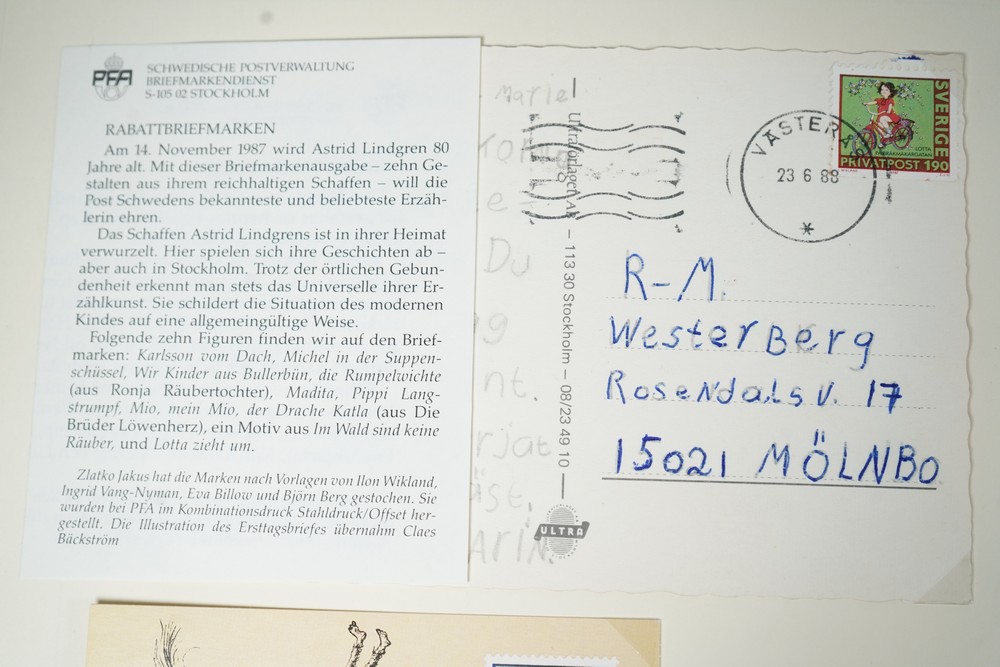 PFA
SCHWEDISCHE POSTVERWALTUNG
BRIEFMARKENDIENST
S-105 02 STOCKHOLM
RABATTBRIEFMARKEN
Am 14. November 1987 wird Astrid Lindgren 80
Jahre alt. Mit dieser Briefmarkenausgabe – zehn Ge-
stalten aus ihrem reichhaltigen Schaffen – will die
Post Schwedens bekannteste und beliebteste Erzäh-
lerin ehren.
Das Schaffen Astrid Lindgrens ist in ihrer Heimat
verwurzelt. Hier spielen sich ihre Geschichten ab –
aber auch in Stockholm. Trotz der örtlichen Gebun-
denheit erkennt man stets das Universelle ihrer Er-
zählkunst. Sie schildert die Situation des modernen
Kindes auf eine allgemeingültige Weise.
Folgende zehn Figuren finden wir auf den Brief-
marken: Karlsson vom Dach, Michel in der Suppen-
schüssel, Wir Kinder aus Bullerbün, die Rumpelwichte
(aus Ronja Räubertochter), Madita, Pippi Lang-
strumpf, Mio, mein Mio, der Drache Katla (aus Die
Brüder Löwenherz), ein Motiv aus Im Wald sind keine
Räuber, und Lotta zieht um.
Zlatko Jakus hat die Marken nach Vorlagen von Ilon Wikland,
Ingrid Vang-Nyman, Eva Billow und Björn Berg gestochen. Sie
wurden bei PFA im Kombinationsdruck Stahldruck/Offset her-
gestellt. Die Illustration des Ersttagsbriefes übernahm Claes
Bäckström
Marie
Du
nt.
rjat
äst.
ARIN.
Ultraförlaget AB – 113 30 Stockholm – 08/23 49 10
ULTRA
VÄSTERÅS
23 6 88
SVERIGE
LOTTA
PRIVATPOST 190
R-M.
WesterBerg
Rosendalsv. 17
15021 MÖLNBO